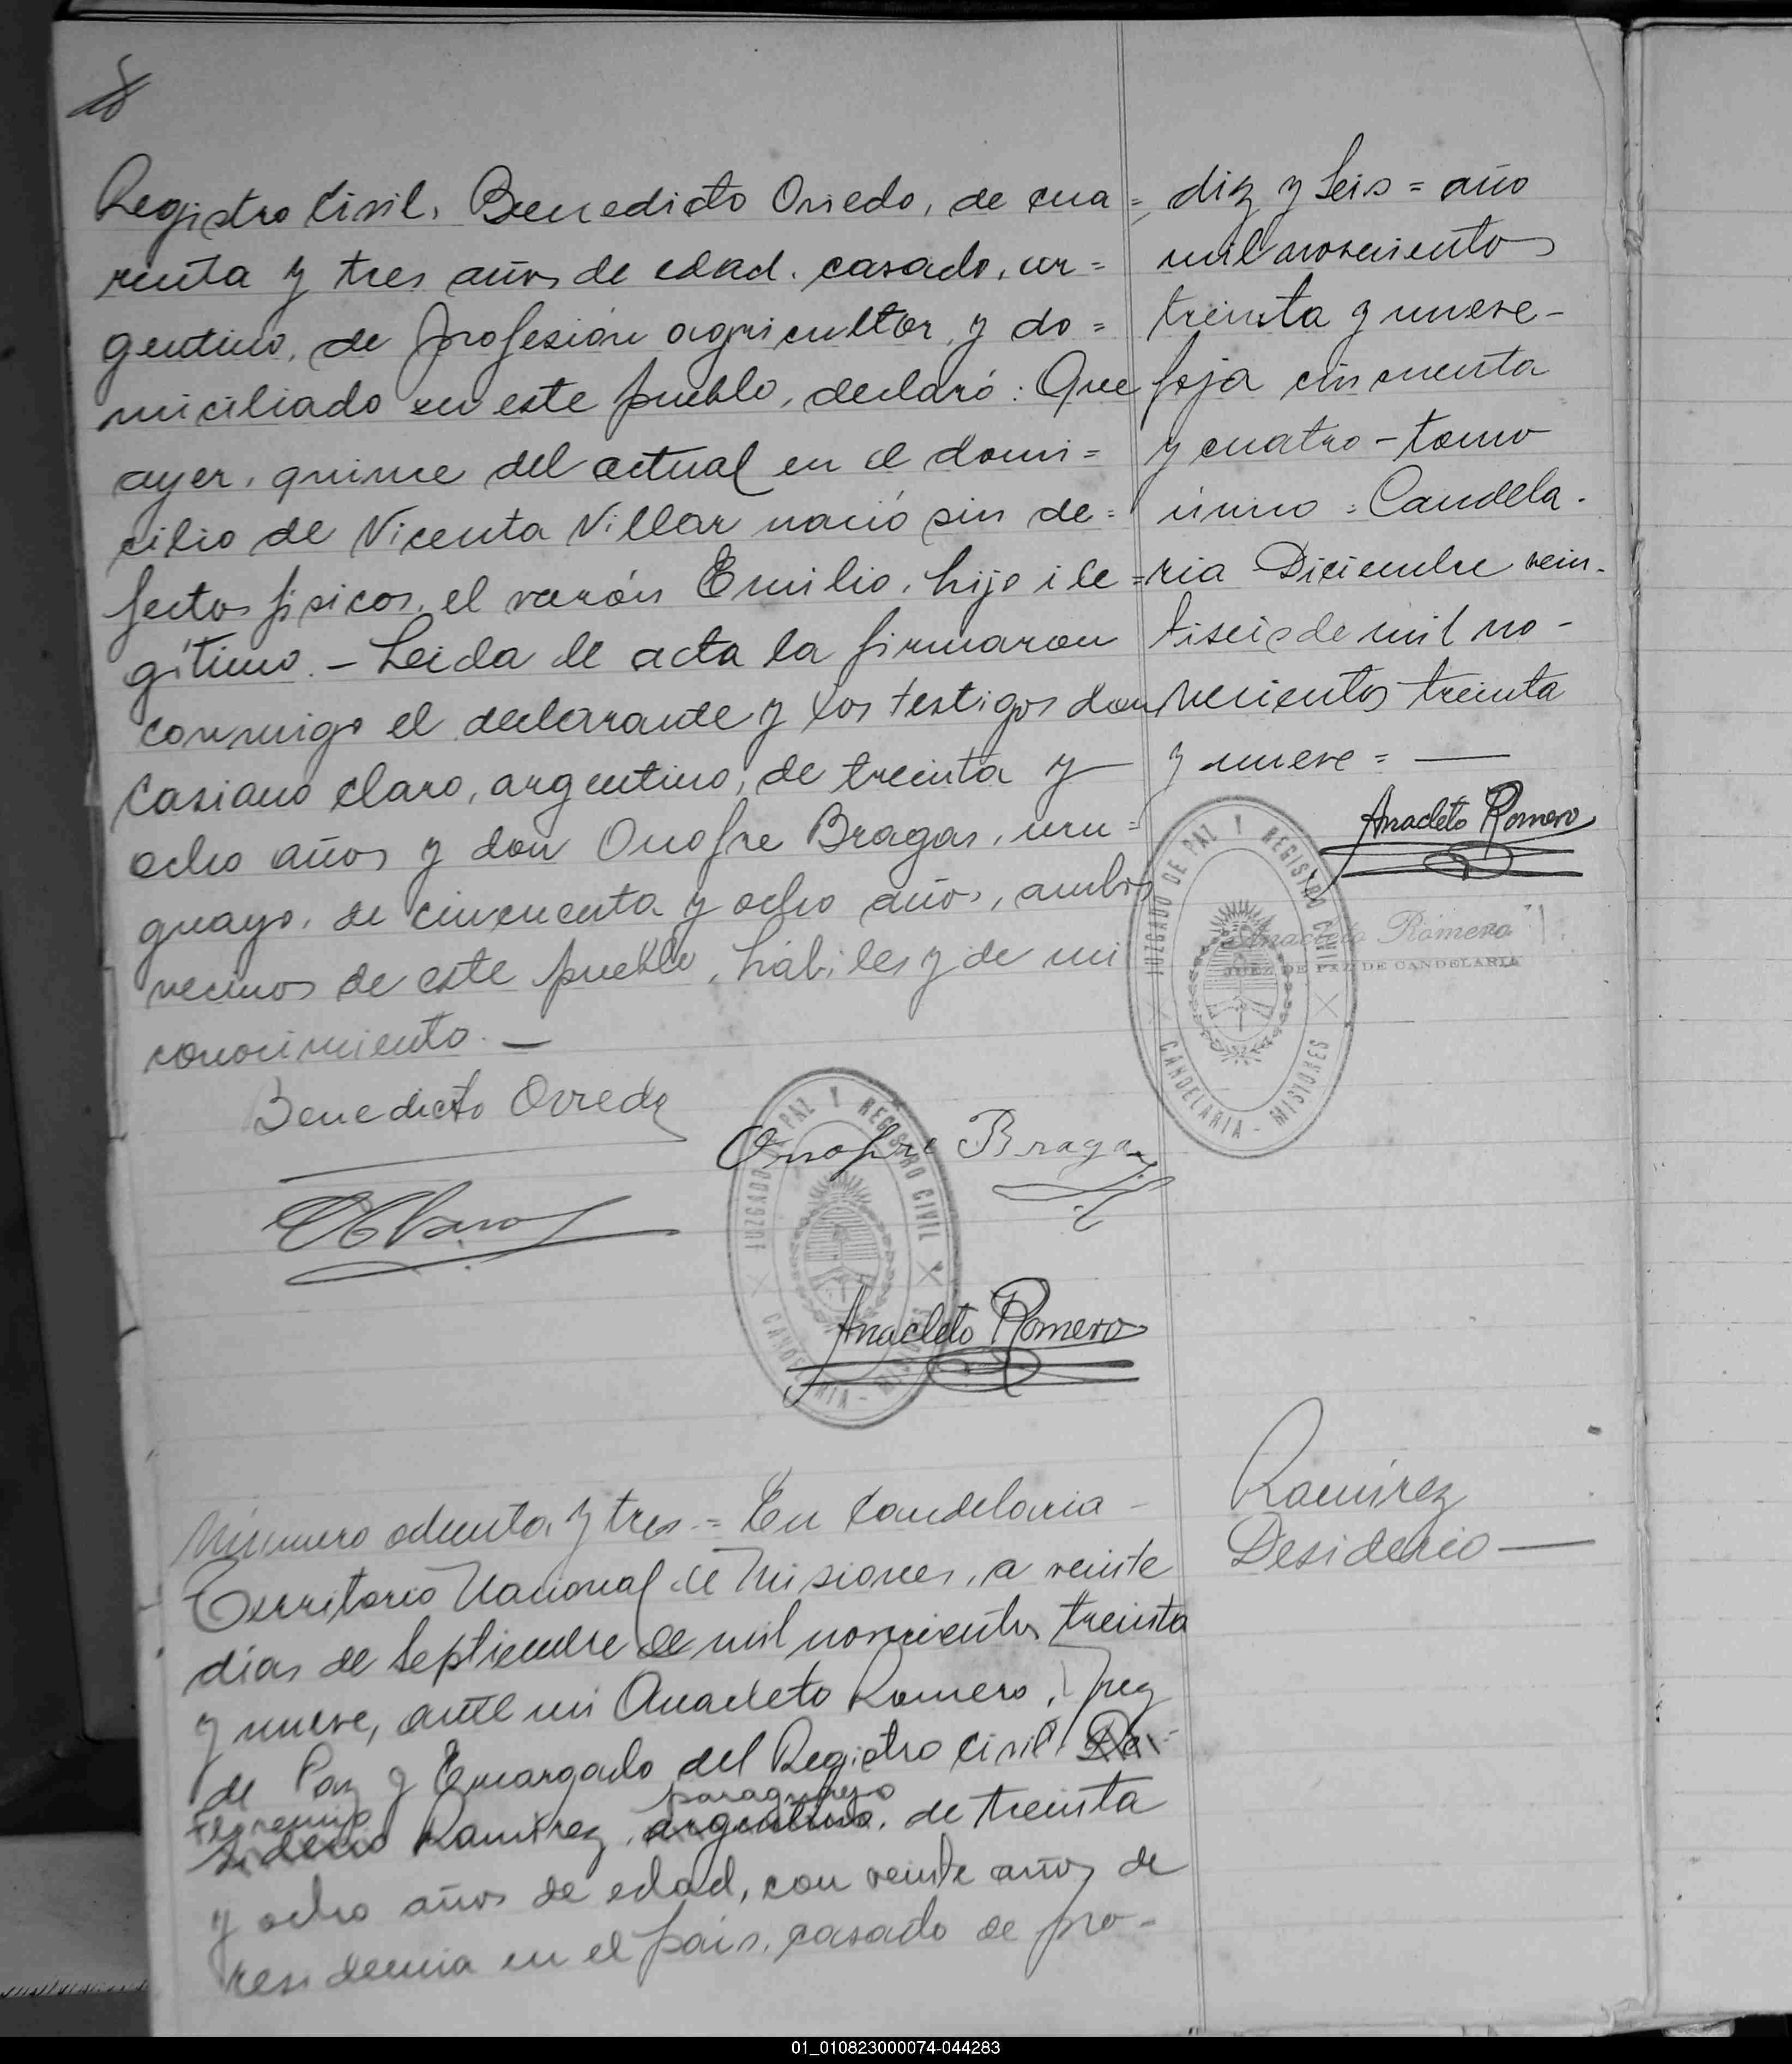 Registro Civil, Benedicto Oviedo, de cua=
renta y tres años de edad, casado, ar=
gentino, de profesión agricultor, y do=
miciliado en este pueblo, declaró: Que
ayer, quince del actual en el domi=
cilio de Vicenta Villar nació sin de=
fectos físicos, el varón Emilio, hijo ile=
gítimo. - Leida el acta la firmaron
conmigo el declarante y los testigos don
Casiano Claro, argentino, de treinta y
ocho años y don Onofre Bragas, uru=
guayo, de cincuenta y ocho años, ambos
vecinos de este pueblo, hábiles y de mi
conocimiento. -
Benedicto Oviedo
Onofre Braga
CClaro
JUZGADO DE PAZ Y REGISTRO CIVIL
CANDELARIA - MISIONES
Anacleto Romero
diz y seis = año
mil novecientos
treinta y nueve -
foja cincuenta
y cuatro - tomo
único = Candela-
ria Diciembre vein-
tiseis de mil no-
vecientos treinta
y nueve = —
Anacleto Romero
JUZGADO DE PAZ Y REGISTRO CIVIL
CANDELARIA - MISIONES
Anacleto Romero
JUEZ DE PAZ DE CANDELARIA
Número ochenta y tres. = En Candelaria -
Territorio Nacional de Misiones, a veinte
días de Septiembre de mil novecientos treinta
y nueve, ante mi Anacleto Romero, Juez
de Paz y Encargado del Registro Civil, De=
Florencio paraguayo
siderio Ramírez, argentino, de treinta
y ocho años de edad, con veinte años de
residencia en el país, casado de pro-
Ramírez
Desiderio —
01_010823000074-044283